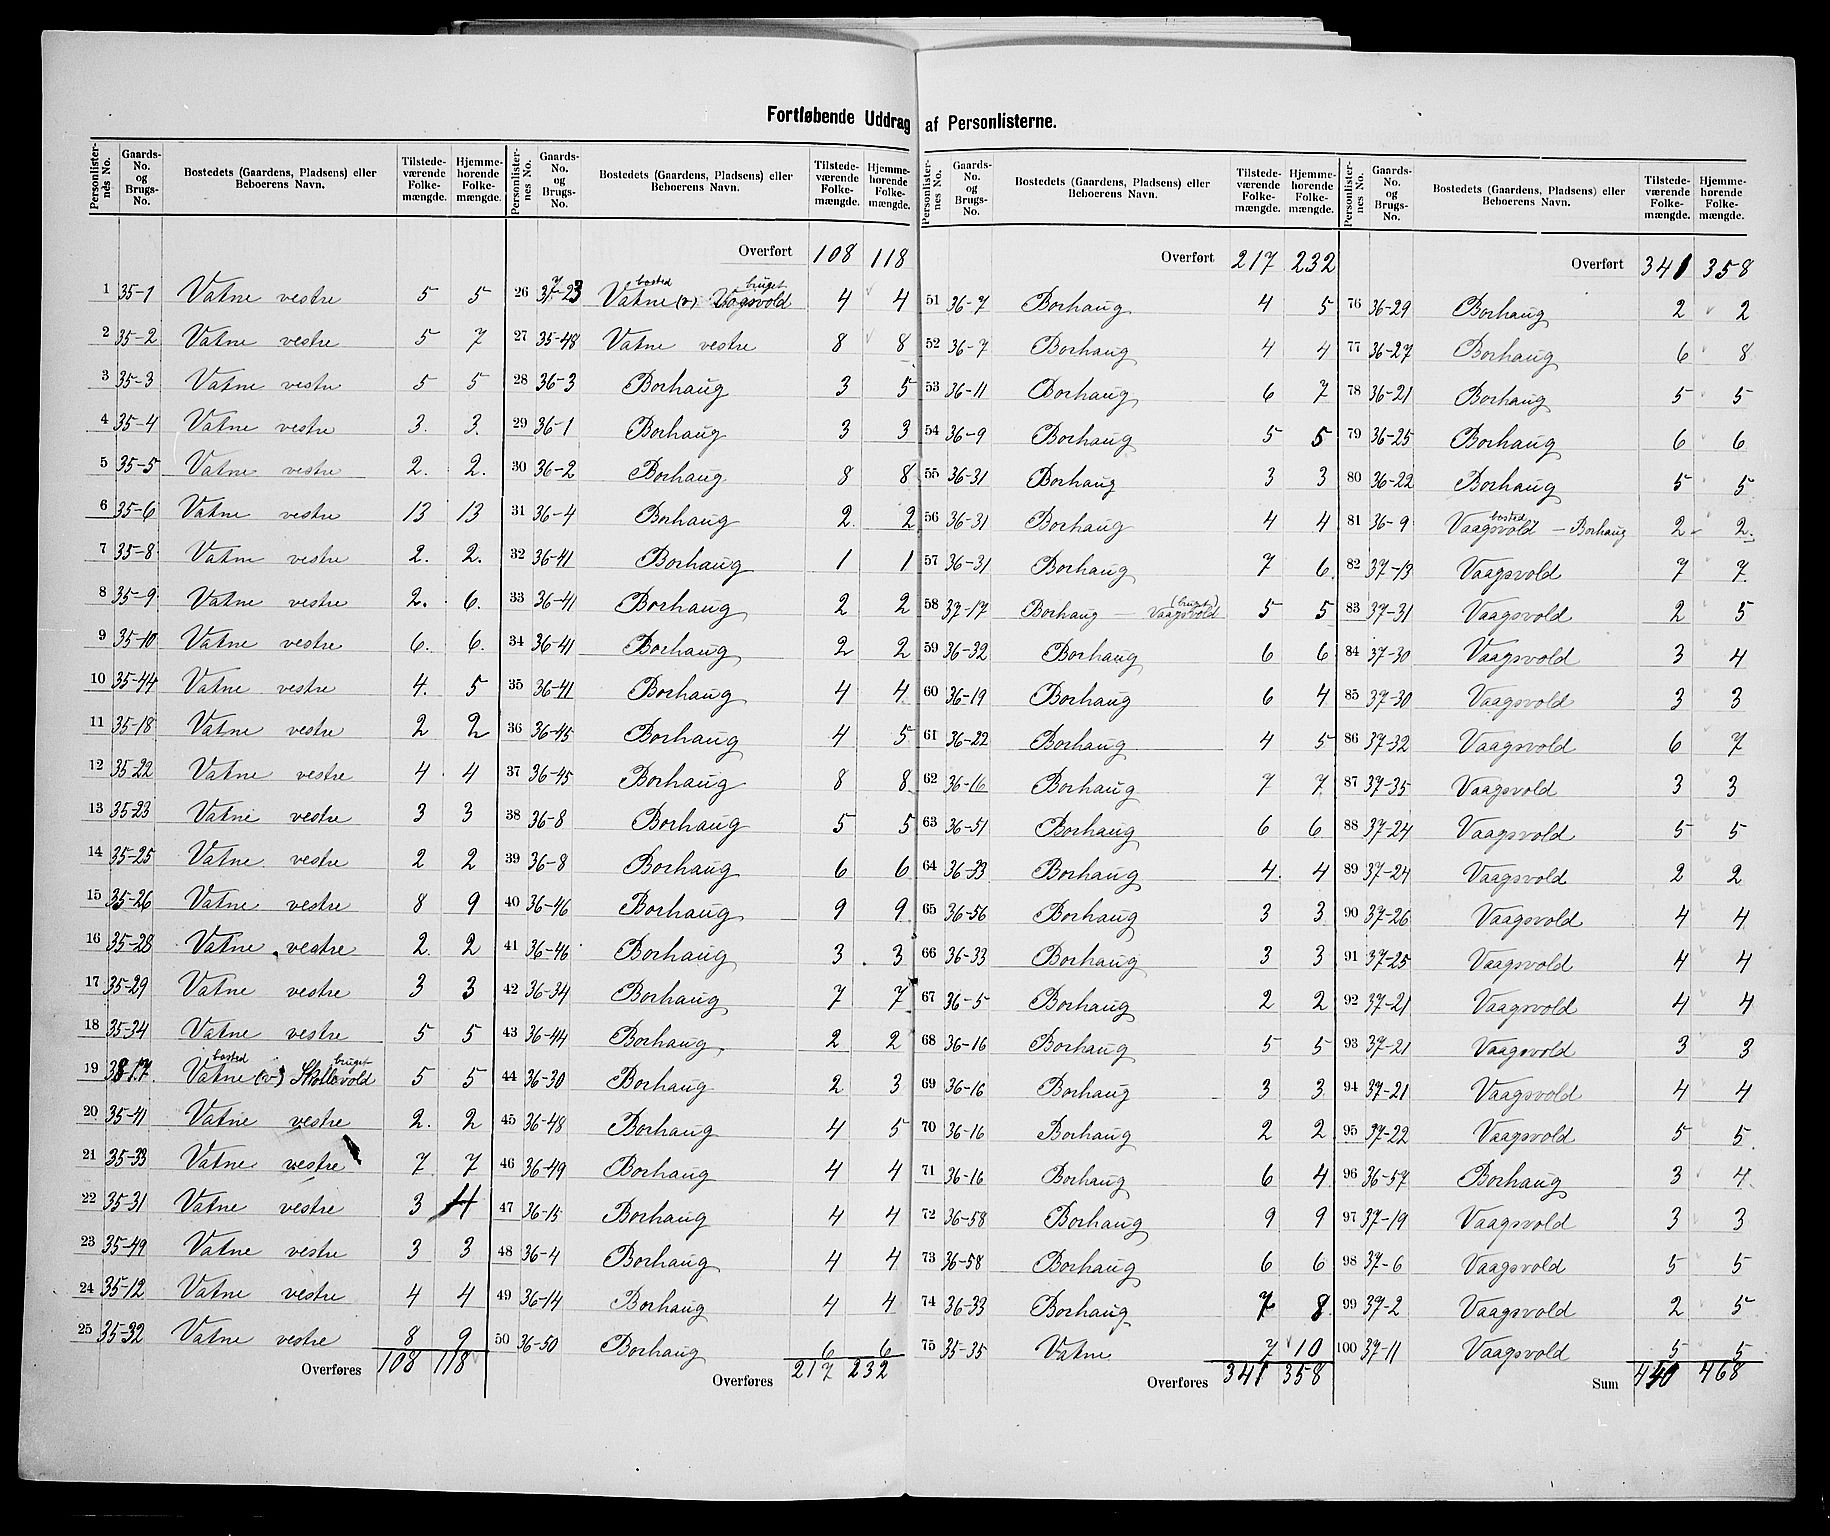 Fortløbende Uddrag af Personlisterne.
Personlisternes No. | Gaards-No. og Brugs-No. | Bostedets (Gaardens, Pladsens) eller Beboerens Navn. | Tilstedeværende Folkemængde. | Hjemmehørende Folkemængde.
1 35-1 Vatne vestre 5 5
2 35-2 Vatne vestre 5 7
3 35-3 Vatne vestre 5 5
4 35-4 Vatne vestre 3. 3.
5 35-5 Vatne vestre 2. 2.
6 35-6 Vatne vestre 13 13
7 35-8 Vatne vestre 2. 2.
8 35-9 Vatne vestre 2. 6.
9 35-10 Vatne vestre 6. 6.
10 35-44 Vatne vestre 4. 5
11 35-18 Vatne vestre 2 2
12 35-22 Vatne vestre 4 4
13 35-23 Vatne vestre 3 3
14 35-25 Vatne vestre 2 2
15 35-26 Vatne vestre 8 9
16 35-28 Vatne vestre 2 2
17 35-29 Vatne vestre 3 3
18 35-34 Vatne vestre 5 5
19 38-17. Vatne (v) bosted Skollevold bruget 5 5
20 35-41 Vatne vestre 2. 2
21 35-33 Vatne vestre 7 7
22 35-31 Vatne vestre 3 4
23 35-49 Vatne vestre 3 3
24 35-12 Vatne vestre 4 4
25 35-32 Vatne vestre 8 9
Overføres 108 118
Personlisternes No. | Gaards-No. og Brugs-No. | Bostedets (Gaardens, Pladsens) eller Beboerens Navn. | Tilstedeværende Folkemængde. | Hjemmehørende Folkemængde.
Overført 108 118
26 37-23 Vatne (v) bosted Vaagsvold bruget 4 4
27 35-48 Vatne vestre 8 8
28 36-3 Borhaug 3 5
29 36-1 Borhaug 3 3
30 36-2 Borhaug 8 8
31 36-4 Borhaug 2 2
32 36-41 Borhaug 1 1
33 36-41 Borhaug 2 2
34 36-41 Borhaug 2 2
35 36-41 Borhaug 4 4
36 36-45 Borhaug 4 5
37 36-45 Borhaug 8 8
38 36-8 Borhaug 5 5
39 36-8 Borhaug 6 6
40 36-46 Borhaug 9 9
41 36-46 Borhaug 3 3
42 36-34 Borhaug 7 7
43 36-44 Borhaug 2 2
44 36-30 Borhaug 2 3
45 36-48 Borhaug 4 5
46 36-49 Borhaug 4 4
47 36-15 Borhaug 4 4
48 36-4 Borhaug 4 4
49 36-14 Borhaug 4 4
50 36-50 Borhaug 6 6
Overføres 217 232
Personlisternes No. | Gaards-No. og Brugs-No. | Bostedets (Gaardens, Pladsens) eller Beboerens Navn. | Tilstedeværende Folkemængde. | Hjemmehørende Folkemængde.
Overført 217 232
51 36-7 Borhaug 4 5
52 36-7 Borhaug 4 4
53 36-11 Borhaug 6 7
54 36-9 Borhaug 5 5
55 36-31 Borhaug 3 3
56 36-31 Borhaug 4 4
57 36-31 Borhaug 7 6
58 37-17 Borhaug – Vaagsvold (bruget) 5 5
59 36-32 Borhaug 6 6
60 36-19 Borhaug 6 4
61 36-22 Borhaug 4 5
62 36-16 Borhaug 7 7
63 36-51 Borhaug 6 6
64 36-33 Borhaug 4 4
65 36-56 Borhaug 3 3
66 36-33 Borhaug 3 3
67 36-5 Borhaug 2 2
68 36-16 Borhaug 5 5
69 36-16 Borhaug 3 3
70 36-16 Borhaug 2 2
71 36-16 Borhaug 6 4
72 36-58 Borhaug 9 9
73 36-58 Borhaug 6 6
74 36-33 Borhaug 7 8
75 35-35 Vatne 7 10
Overføres 341 358
Personlisternes No. | Gaards-No. og Brugs-No. | Bostedets (Gaardens, Pladsens) eller Beboerens Navn. | Tilstedeværende Folkemængde. | Hjemmehørende Folkemængde.
Overført 341 358
76 36-29 Borhaug 2 2
77 36-27 Borhaug 6 8
78 36-21 Borhaug 5 5
79 36-25 Borhaug 6 6
80 36-22 Borhaug 5 5
81 36-9 Vaagsvold bosted – Borhaug 2 2
82 37-13 Vaagsvold 7 7
83 37-31 Vaagsvold 2 5
84 37-30 Vaagsvold 3 4
85 37-30 Vaagsvold 3 3
86 37-32 Vaagsvold 6 7
87 37-35 Vaagsvold 3 3
88 37-24 Vaagsvold 5 5
89 37-24 Vaagsvold 2 2
90 37-26 Vaagsvold 4 4
91 37-25 Vaagsvold 4 4
92 37-21 Vaagsvold 4 4
93 37-21 Vaagsvold 3 3
94 37-21 Vaagsvold 4 4
95 37-22 Vaagsvold 5 5
96 36-57 Borhaug 3 4
97 37-19 Vaagsvold 3 3
98 37-6 Vaagsvold 5 5
99 37-2 Vaagsvold 2 5
100 37-11 Vaagsvold 5 5
Sum 440 468